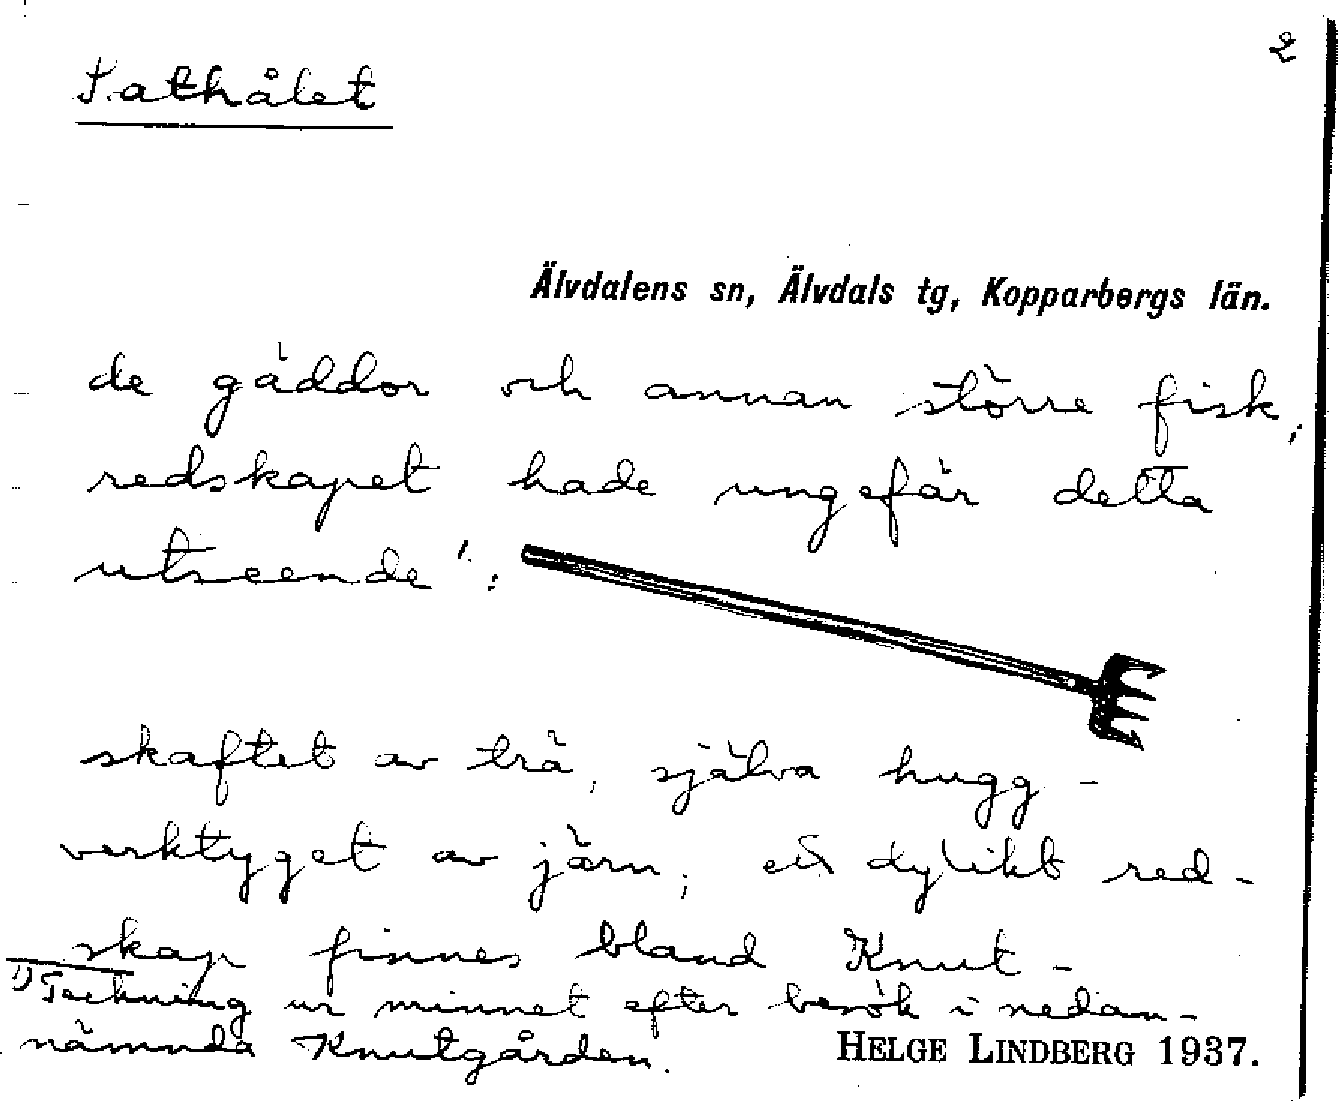 2
Sathålet
Älvdalens sn, Älvdals tg, Kopparbergs län.
de gäddor och annan större fisk;
redskapet hade ungefär detta
utseende 1):
skaftet av trä, själva hugg-
verktyget av järn; ett dylikt red-
skap finnes bland Knut-
1) Teckning ur minnet efter besök i nedan-
nämnda Knutgården.
HELGE LINDBERG 1937.